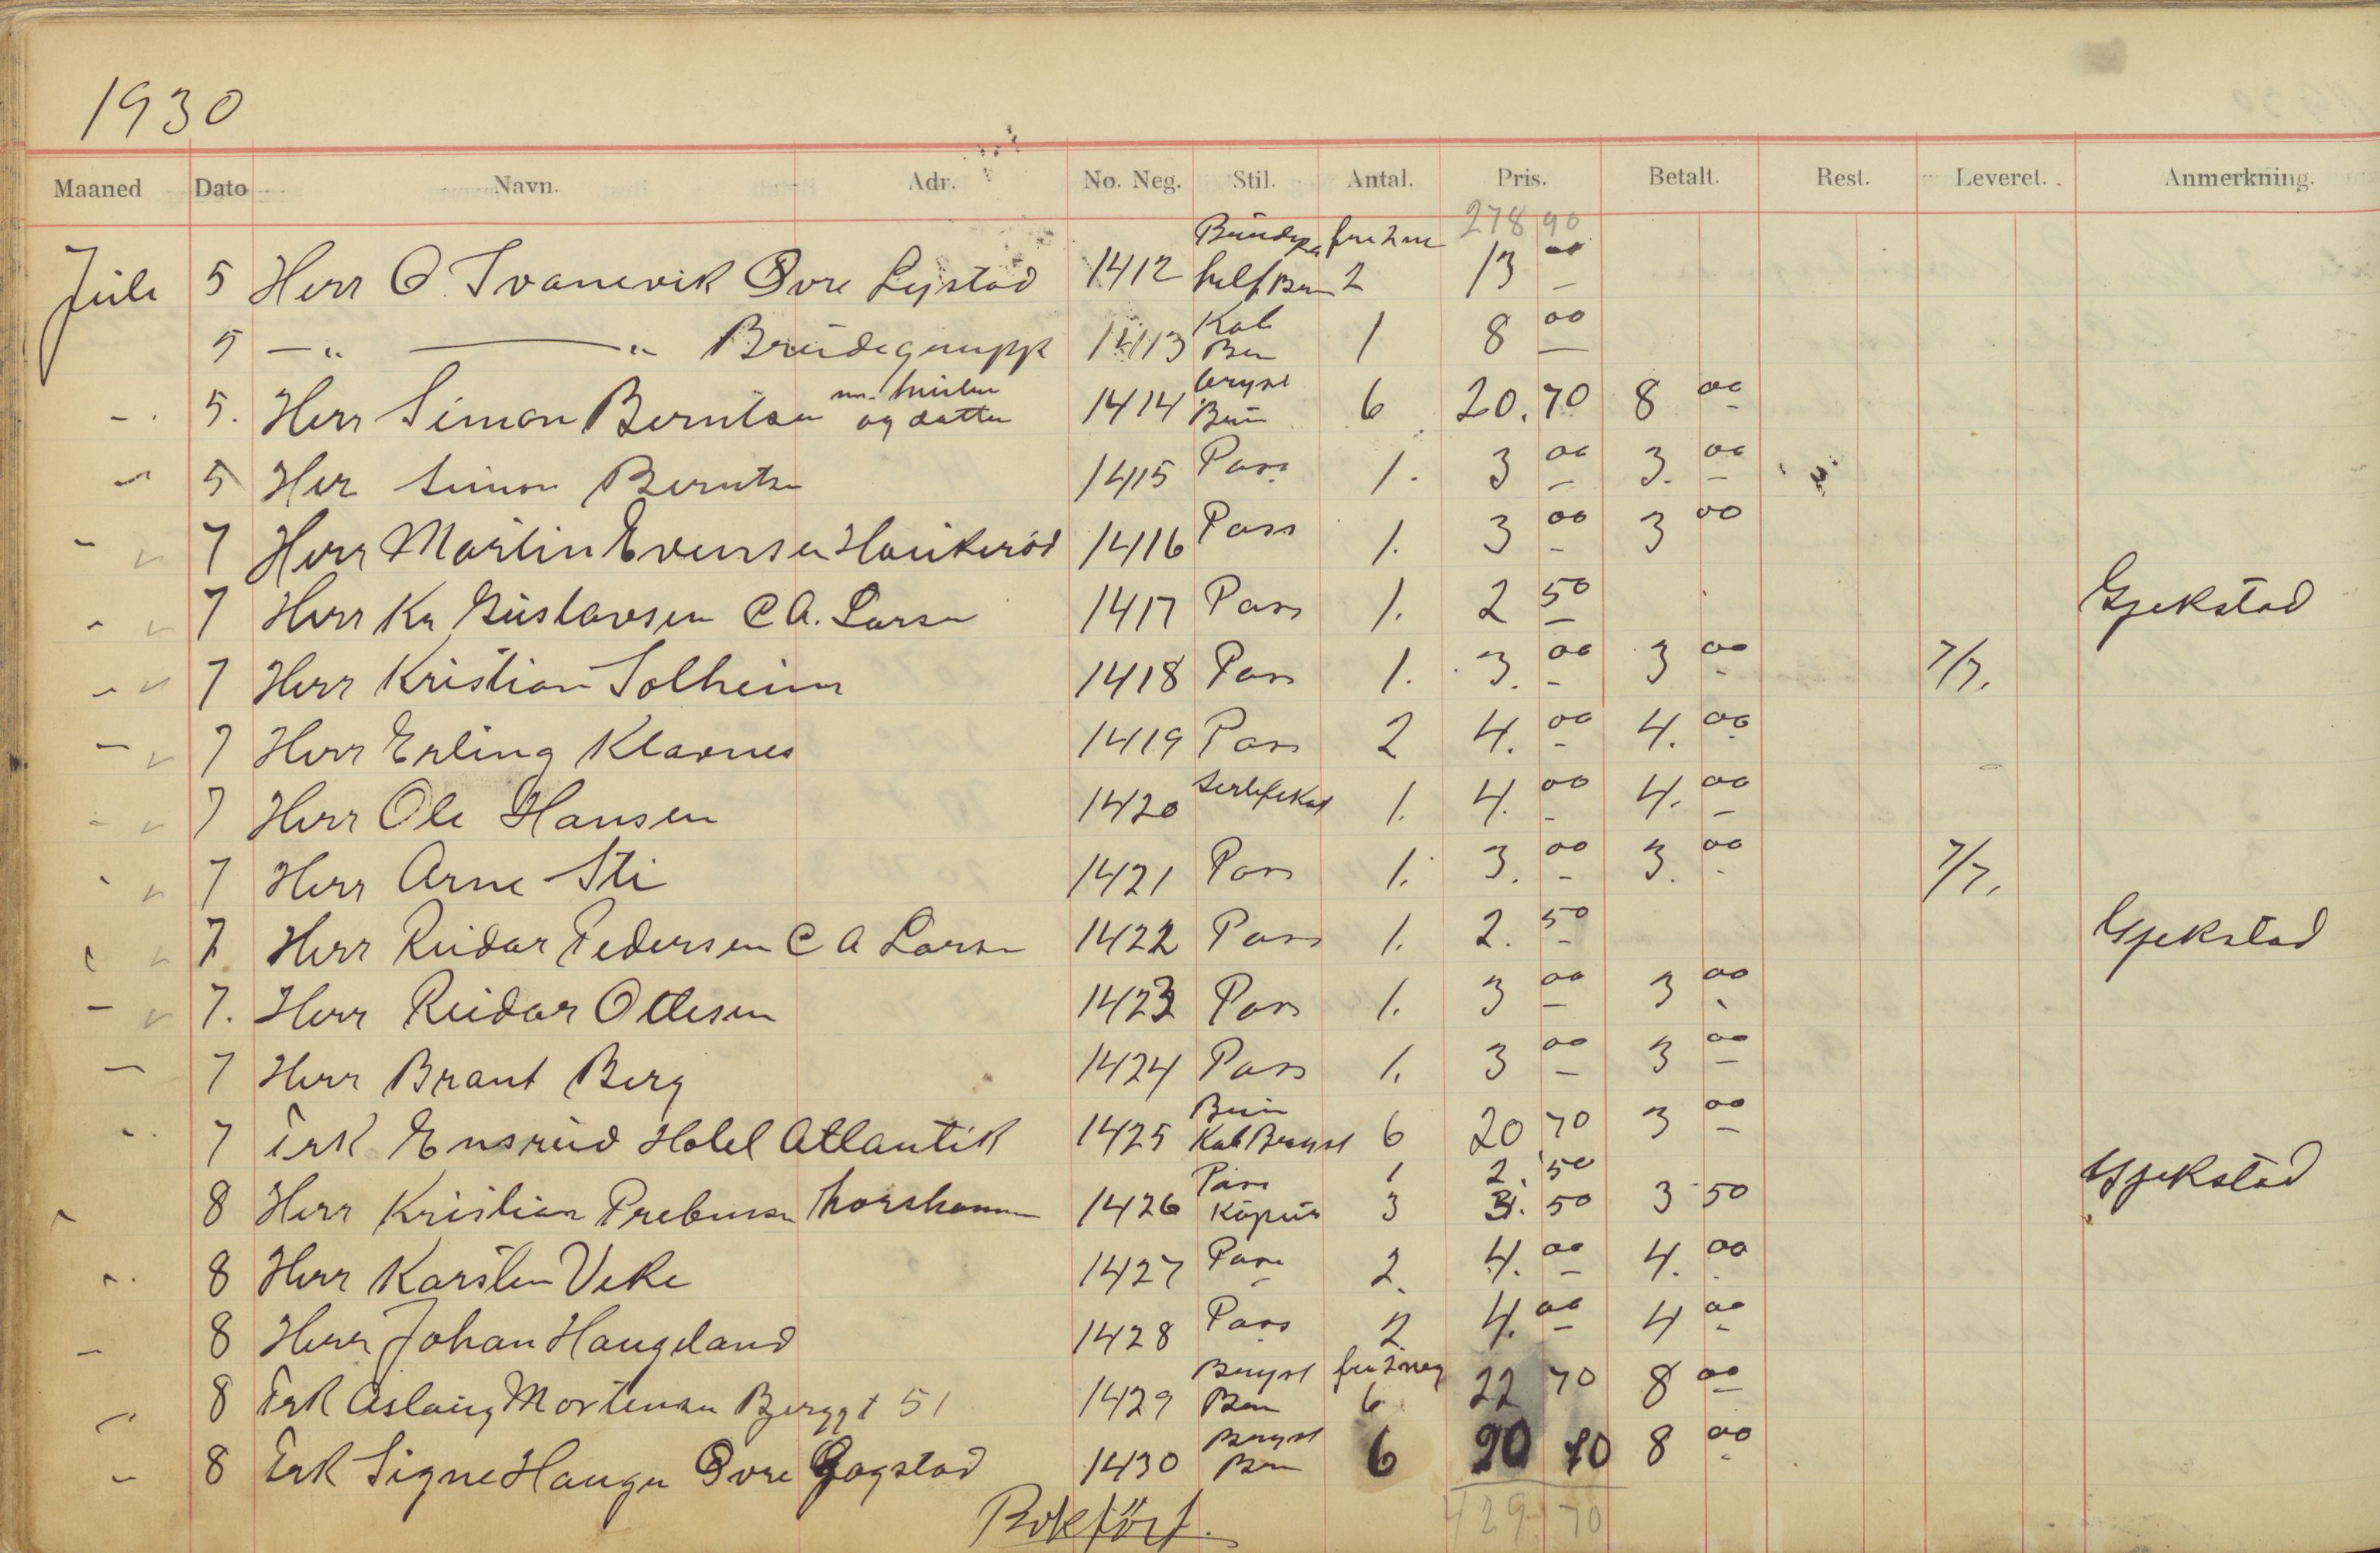 1930
Maaned Dato Navn. Adr. No. Neg. Stil. Antal. Pris. Betalt. Rest. Leveret. Anmerkning.
278 90
Juli 5 Herr O. Svanevik Øvre 1412 2 13 00
5 — „ — „ Brudegruppe 1413 Kab 1 8 00
5. Herr Simon Berntsen og datter 1414 Bryst 6 20. 70 8 00
5 Her Simon Berntsen 1415 Pass 1. 3 00 3. 00
7 Herr Martin Evensen Haukerød 1416 Pass 1. 3 00 3 00
7 Herr Kr Gustavsen C A. Larsen 1417 Pass 1. 2 50 Gjekstad
7 Herr Kristian Solheim 1418 Pass 1. 3. 00 3 00 7/7.
7 Herr Erling Klavnes 1419 Pass 2 4. 00 4. 00
7 Herr Ole Hansen 1420 Sertefikat 1. 4. 00 4. 00
7 Herr Arne Sti 1421 Pass 1. 3. 00 3. 00 7/7.
7 Herr Reidar Pedersen C A Larsen 1422 Pass 1. 2. 50 Gjekstad
7. Herr Reidar Ottesen 1423 Pass 1. 3 00 3 00
7 Herr Brant Berg 1424 Pass 1. 3 00 3 00
7 Frk Ensrud Hotel Atlantik 1425 Kab Bryst 6 20 70 3 00
Pass 1 2. 50
8 Herr Kristian Prebensen Thorshammer 1426 Kopier 3 3. 50 3 50 Gjekstad
8 Herr Karsten Veke 1427 Pass 2. 4. 00 4. 00
8 Herr Johan Haugeland 1428 Pass 2 4. 00 4 00
8 Frk Aslaug Mortensen Berggt 51 1429 Bryst 6 22 70 8 00
8 Frk Signe Haugen Øvre Gogstad 1430 Bryst 6 20 70 8 00
Bokført. 429 70